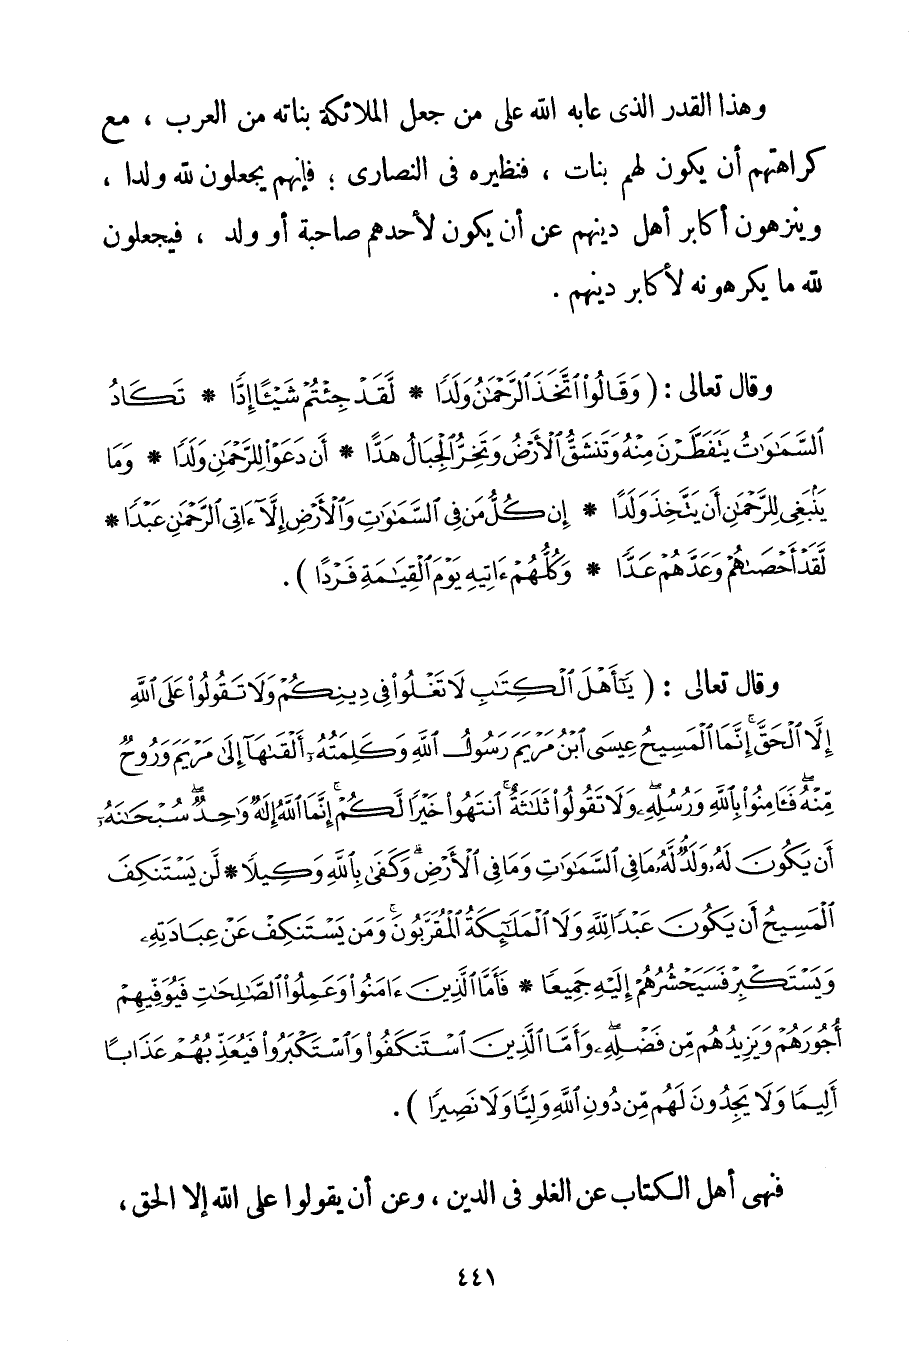 وهذا القدر الذى عابه الله على من جعل الملائكة بناته من العرب ، مع
كراهتهم أن يكون لهم بنات ، فنظيره فى النصارى ؛ فإنهم يجعلون لله ولدا ،
وينزهون أكابر أهل دينهم عن أن يكون لأحدهم صاحبة أو ولد ، فيجعلون
لله ما يكرهونه لأكابر دينهم .
وقال تعالى : ( وَقَالُوا۟ ٱتَّخَذَ ٱلرَّحْمَٰنُ وَلَدًا * لَّقَدْ جِئْتُمْ شَيْـًٔا إِدًّا * تَكَادُ
ٱلسَّمَٰوَٰتُ يَتَفَطَّرْنَ مِنْهُ وَتَنشَقُّ ٱلْأَرْضُ وَتَخِرُّ ٱلْجِبَالُ هَدًّا * أَن دَعَوْا۟ لِلرَّحْمَٰنِ وَلَدًا * وَمَا
يَنۢبَغِى لِلرَّحْمَٰنِ أَن يَتَّخِذَ وَلَدًا * إِن كُلُّ مَن فِى ٱلسَّمَٰوَٰتِ وَٱلْأَرْضِ إِلَّآ ءَاتِى ٱلرَّحْمَٰنِ عَبْدًا *
لَّقَدْ أَحْصَىٰهُمْ وَعَدَّهُمْ عَدًّا * وَكُلُّهُمْ ءَاتِيهِ يَوْمَ ٱلْقِيَٰمَةِ فَرْدًا ) .
وقال تعالى : ( يَٰٓأَهْلَ ٱلْكِتَٰبِ لَا تَغْلُوا۟ فِى دِينِكُمْ وَلَا تَقُولُوا۟ عَلَى ٱللَّهِ
إِلَّا ٱلْحَقَّ ۚ إِنَّمَا ٱلْمَسِيحُ عِيسَى ٱبْنُ مَرْيَمَ رَسُولُ ٱللَّهِ وَكَلِمَتُهُۥٓ أَلْقَىٰهَآ إِلَىٰ مَرْيَمَ وَرُوحٌ
مِّنْهُ ۖ فَـَٔامِنُوا۟ بِٱللَّهِ وَرُسُلِهِۦ ۖ وَلَا تَقُولُوا۟ ثَلَٰثَةٌ ۚ ٱنتَهُوا۟ خَيْرًا لَّكُمْ ۚ إِنَّمَا ٱللَّهُ إِلَٰهٌ وَٰحِدٌ ۖ سُبْحَٰنَهُۥٓ
أَن يَكُونَ لَهُۥ وَلَدٌ ۘ لَّهُۥ مَا فِى ٱلسَّمَٰوَٰتِ وَمَا فِى ٱلْأَرْضِ ۗ وَكَفَىٰ بِٱللَّهِ وَكِيلًا * لَّن يَسْتَنكِفَ
ٱلْمَسِيحُ أَن يَكُونَ عَبْدًا لِّلَّهِ وَلَا ٱلْمَلَٰٓئِكَةُ ٱلْمُقَرَّبُونَ ۚ وَمَن يَسْتَنكِفْ عَنْ عِبَادَتِهِۦ
وَيَسْتَكْبِرْ فَسَيَحْشُرُهُمْ إِلَيْهِ جَمِيعًا * فَأَمَّا ٱلَّذِينَ ءَامَنُوا۟ وَعَمِلُوا۟ ٱلصَّٰلِحَٰتِ فَيُوَفِّيهِمْ
أُجُورَهُمْ وَيَزِيدُهُم مِّن فَضْلِهِۦ ۖ وَأَمَّا ٱلَّذِينَ ٱسْتَنكَفُوا۟ وَٱسْتَكْبَرُوا۟ فَيُعَذِّبُهُمْ عَذَابًا
أَلِيمًا وَلَا يَجِدُونَ لَهُم مِّن دُونِ ٱللَّهِ وَلِيًّا وَلَا نَصِيرًا ) .
فنهى أهل الكتاب عن الغلو فى الدين ، وعن أن يقولوا على الله إلا الحق ،
٤٤١